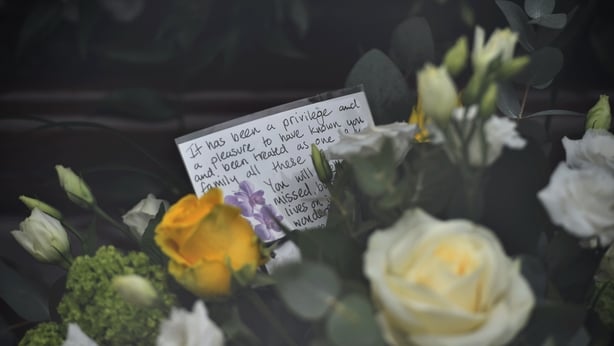 It has been a privilege and
a pleasure to have known you
and been treated as one
family all these
You will
missed,
lives on